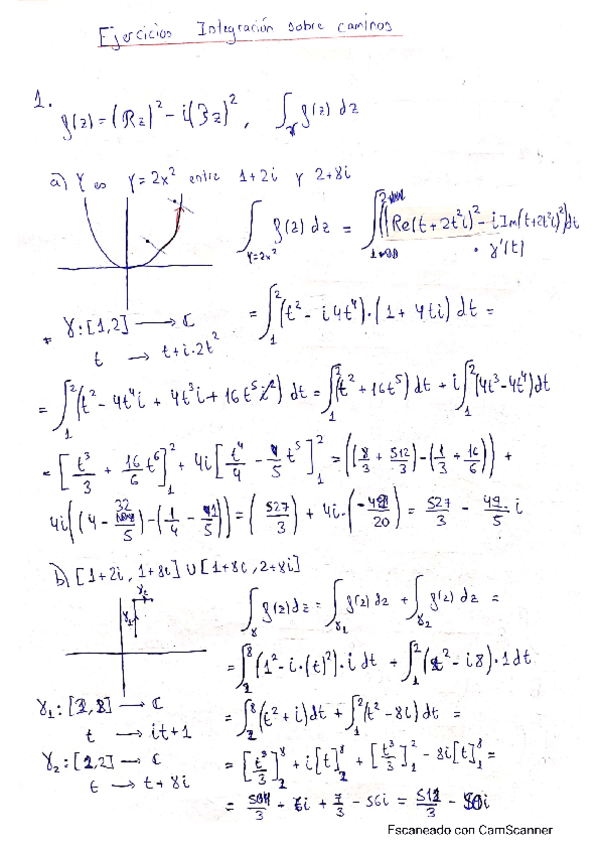 Ejercicios Integración sobre caminos
1. f(z) = (Rz)² - i(Iz)², ∫_γ f(z) dz
a) γ es y = 2x² entre 1+2i y 2+8i
∫_{y=2x²} f(z) dz = ∫₁² (Re(t+2t²i)² - i Im(t+2t²i)²) dt
· γ'(t)
γ: [1,2] → ℂ
t → t+i·2t²
= ∫₁² (t² - i4t⁴)·(1+4ti) dt =
= ∫₁² (t² - 4t⁴i + 4t³i + 16t⁵) dt = ∫₁² (t² + 16t⁵) dt + i∫₁² (4t³ - 4t⁴) dt
= [t³/3 + 16/6 t⁶]₁² + 4i[t⁴/4 - t⁵/5]₁² = ((8/3 + 512/3) - (1/3 + 16/6)) +
4i((4 - 32/5) - (1/4 - 1/5)) = (527/3) + 4i·(-49/20) = 527/3 - 49/5 i
b) [1+2i, 1+8i] ∪ [1+8i, 2+8i]
γ₂
γ₁
∫_γ f(z) dz = ∫_γ₁ f(z) dz + ∫_γ₂ f(z) dz =
= ∫₂⁸ (1² - i·(t)²)·i dt + ∫₁² (t² - i8)·1 dt
γ₁: [2,8] → ℂ
t → it+1
= ∫₂⁸ (t² + i) dt + ∫₁² (t² - 8i) dt =
γ₂: [1,2] → ℂ
t → t+8i
= [t³/3]₂⁸ + i[t]₂⁸ + [t³/3]₁² - 8i[t]₁⁸ =
= 504/3 + 6i + 7/3 - 56i = 511/3 - 50i
Escaneado con CamScanner